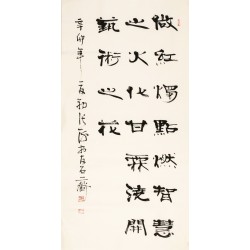 做紅燭點燃智慧
之火化甘霖澆開
藝術之花
辛卯年夏初